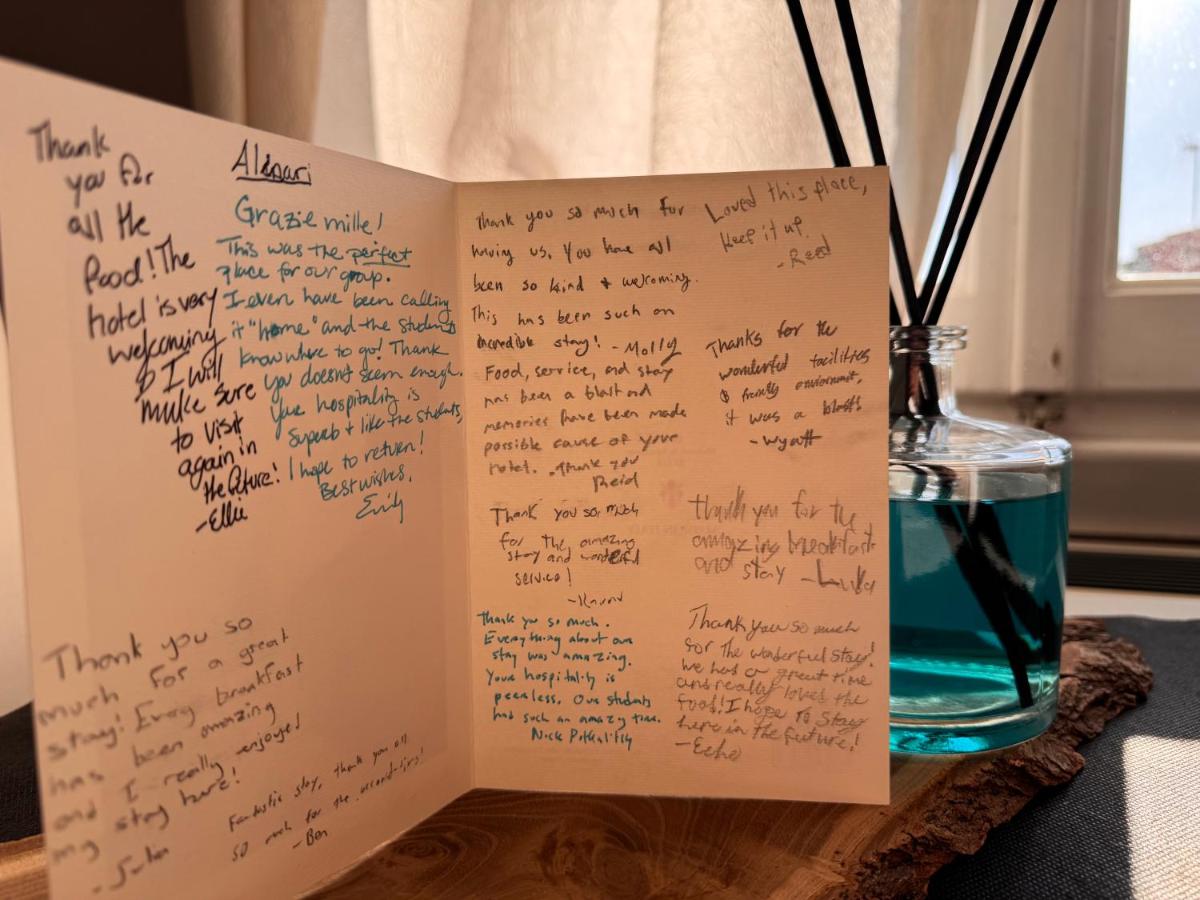 Thank
you for
all the
food! The
hotel is very
welcoming
so I will
make sure
to visit
again in
the future!
-Ellie
Grazie mille!
This was the perfect
place for our group.
I even have been calling
it "home" and the students
know where to go! Thank
you doesn't seem enough.
Your hospitality is
superb & like the students,
I hope to return!
Best wishes,
Emily
Thank you so
much for a great
stay! Every breakfast
has been amazing
and I really enjoyed
my stay here!
Fantastic stay, thank you all
so much for the
-Ben
Thank you so much for
having us. You have all
been so kind & welcoming.
This has been such an
incredible stay! - Molly
Food, service, and stay
has been a blast and
memories have been made
possible cause of your
hotel. Thank you
Reid
Thank you so much
for the amazing
stay and wonderful
service!
Thank you so much.
Everything about our
stay was amazing.
Your hospitality is
peerless. Our students
had such an amazing time.
Nick
Loved this place,
Keep it up.
- Reed
Thanks for the
wonderful facilities
& friendly enviornment,
it was a blast
- Wyatt
thank you for the
amazing breakfast
and stay - Luka
Thank you so much
for the wonderful stay!
we had a great time
and really loved the
food! I hope to stay
here in the future!
- Echo